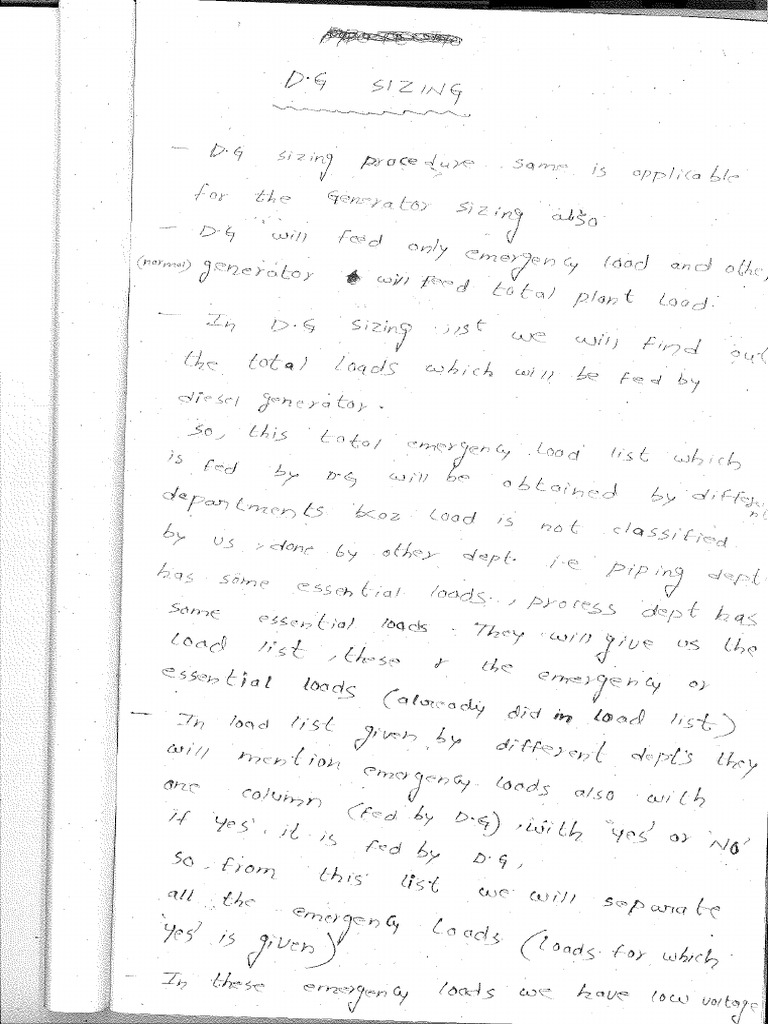 D.G SIZING
- D.G sizing procedure same is applicable
for the Generator sizing also
- D.G will feed only emergency load and othe
(normal) generator will feed total plant load.
- In D.G sizing, 1st we will find out
the total loads which will be fed by
diesel generator.
so, this total emergency load list which
is fed by D.G will be obtained by different
departments bcoz load is not classified
by us, done by other dept. i.e piping dept
has some essential loads, process dept has
some essential loads. They will give us the
load list, these r the emergency or
essential loads (already did in load list)
- In load list given by different dept's they
will mention emergency loads also with
one column (fed by D.G), with 'yes' or 'NO'
if 'yes', it is fed by D.G,
so, from this list we will separate
all the emergency loads (loads for which
'yes' is given)
- In these emergency loads we have low voltage